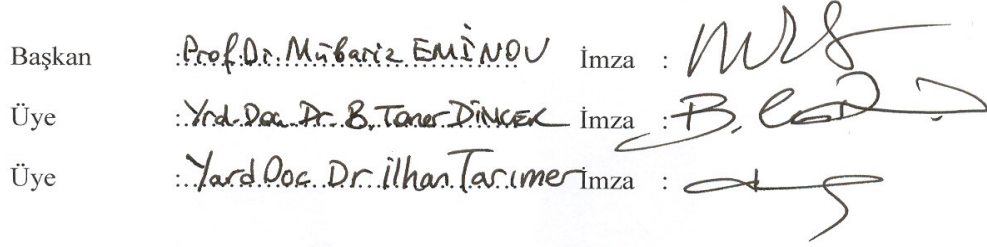 Başkan :Prof.Dr. Mübariz EMİNOV İmza :
Üye :Yrd.Doç.Dr. B. Taner DİNÇER İmza :
Üye :Yard.Doç.Dr.İlhan Tarımer İmza :